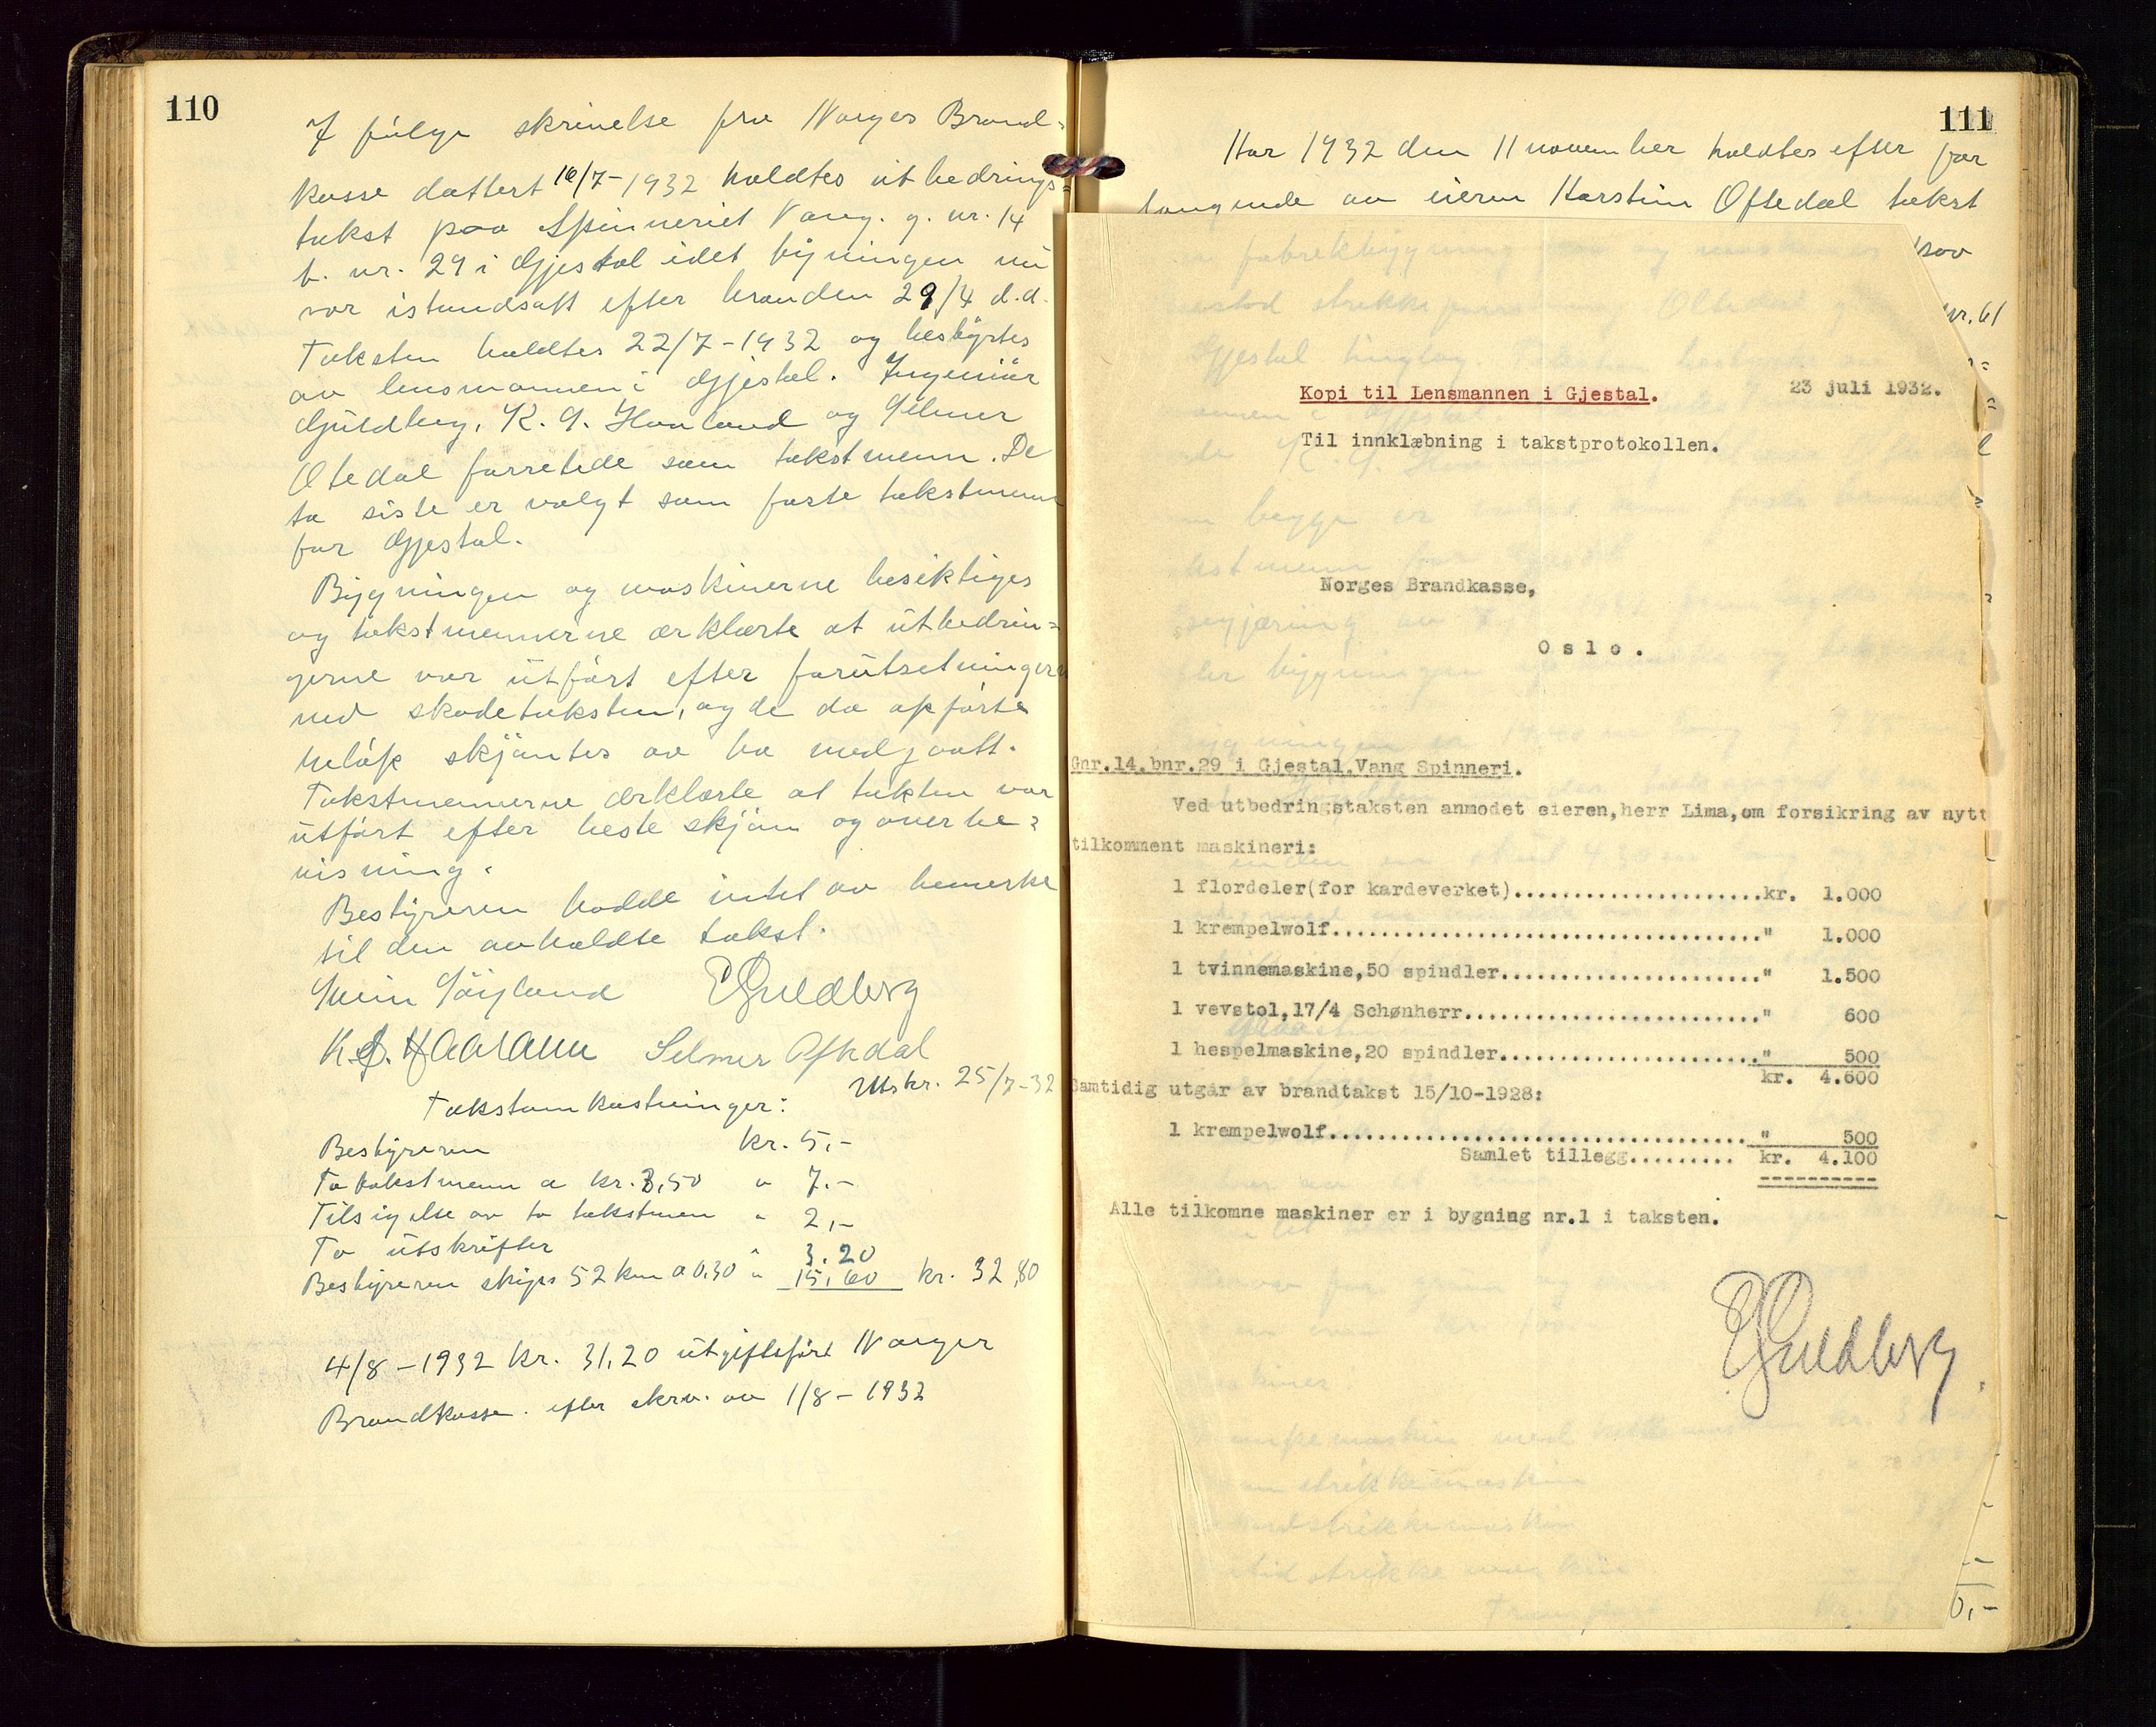 110
I følge skrivelse fra Norges Brand-
kasse dattert 16/7-1932 holdtes utbedrings-
takst paa Spinneriet Vang. g. nr. 14
b. nr. 29 i Gjestal idet bygningen nu
var istandsatt efter branden 29/4 d.a.
Taksten holdtes 22/7-1932 og bestyrtes
av lensmannen i Gjestal. Ingeniør
Guldberg, K. G. Haaland og Selmer
Oftedal forrettede som takstmenn. De
to siste er valgt som faste takstmenn
for Gjestal.
Bygningen og maskinerne besiktiges
og takstmennerne ærklærte at utbedrin=
gerne var utført efter forutsetningerne
ved skadetaksten, og de da opførte
beløp skjøntes av ha medgaatt.
Takstmennerne ærklærte at takten var
utført efter beste skjøn og overbe=
visning.
Bestyreren hadde intet av bemerke
til den avholdte takst.
Guldberg
K. G. Haaland Selmer Oftedal
Utskr. 25/7-32
Takstomkostninger:
Bestyreren kr. 5,-
To takstmenn a kr. 3,50 " 7.-
Tilsigelse av to takstmen " 2,-
To utskrifter " 3.20
Bestyreren skyss 52 km a 0,30 " 15,60 kr. 32,80
4/8-1932 kr. 31,20 utgiftsført Norges
Brandkasse. efter skrv. av 1/8-1932
111
Aar 1932 den 11 november holdtes efter for
langende av eieren Karstein Oftedal takst
nr. 61
Kopi til Lensmannen i Gjestal. 23 juli 1932.
Til innklæbning i takstprotokollen.
Norges Brandkasse,
Oslo.
Gnr.14.bnr.29 i Gjestal.Vang Spinneri.
Ved utbedringstaksten anmodet eieren,herr Lima,om forsikring av nytt
tilkomment maskineri:
1 flordeler(for kardeverket).....................kr. 1.000
1 krempelwolf...................................." 1.000
1 tvinnemaskine,50 spindler......................" 1.500
1 vevstol,17/4 Schønherr........................." 600
1 hespelmaskine,20 spindler......................" 500
kr. 4.600
Samtidig utgår av brandtakst 15/10-1928:
1 krempelwolf..................................." 500
Samlet tillegg......... kr. 4.100
Alle tilkomne maskiner er i bygning nr.1 i taksten.
Guldberg